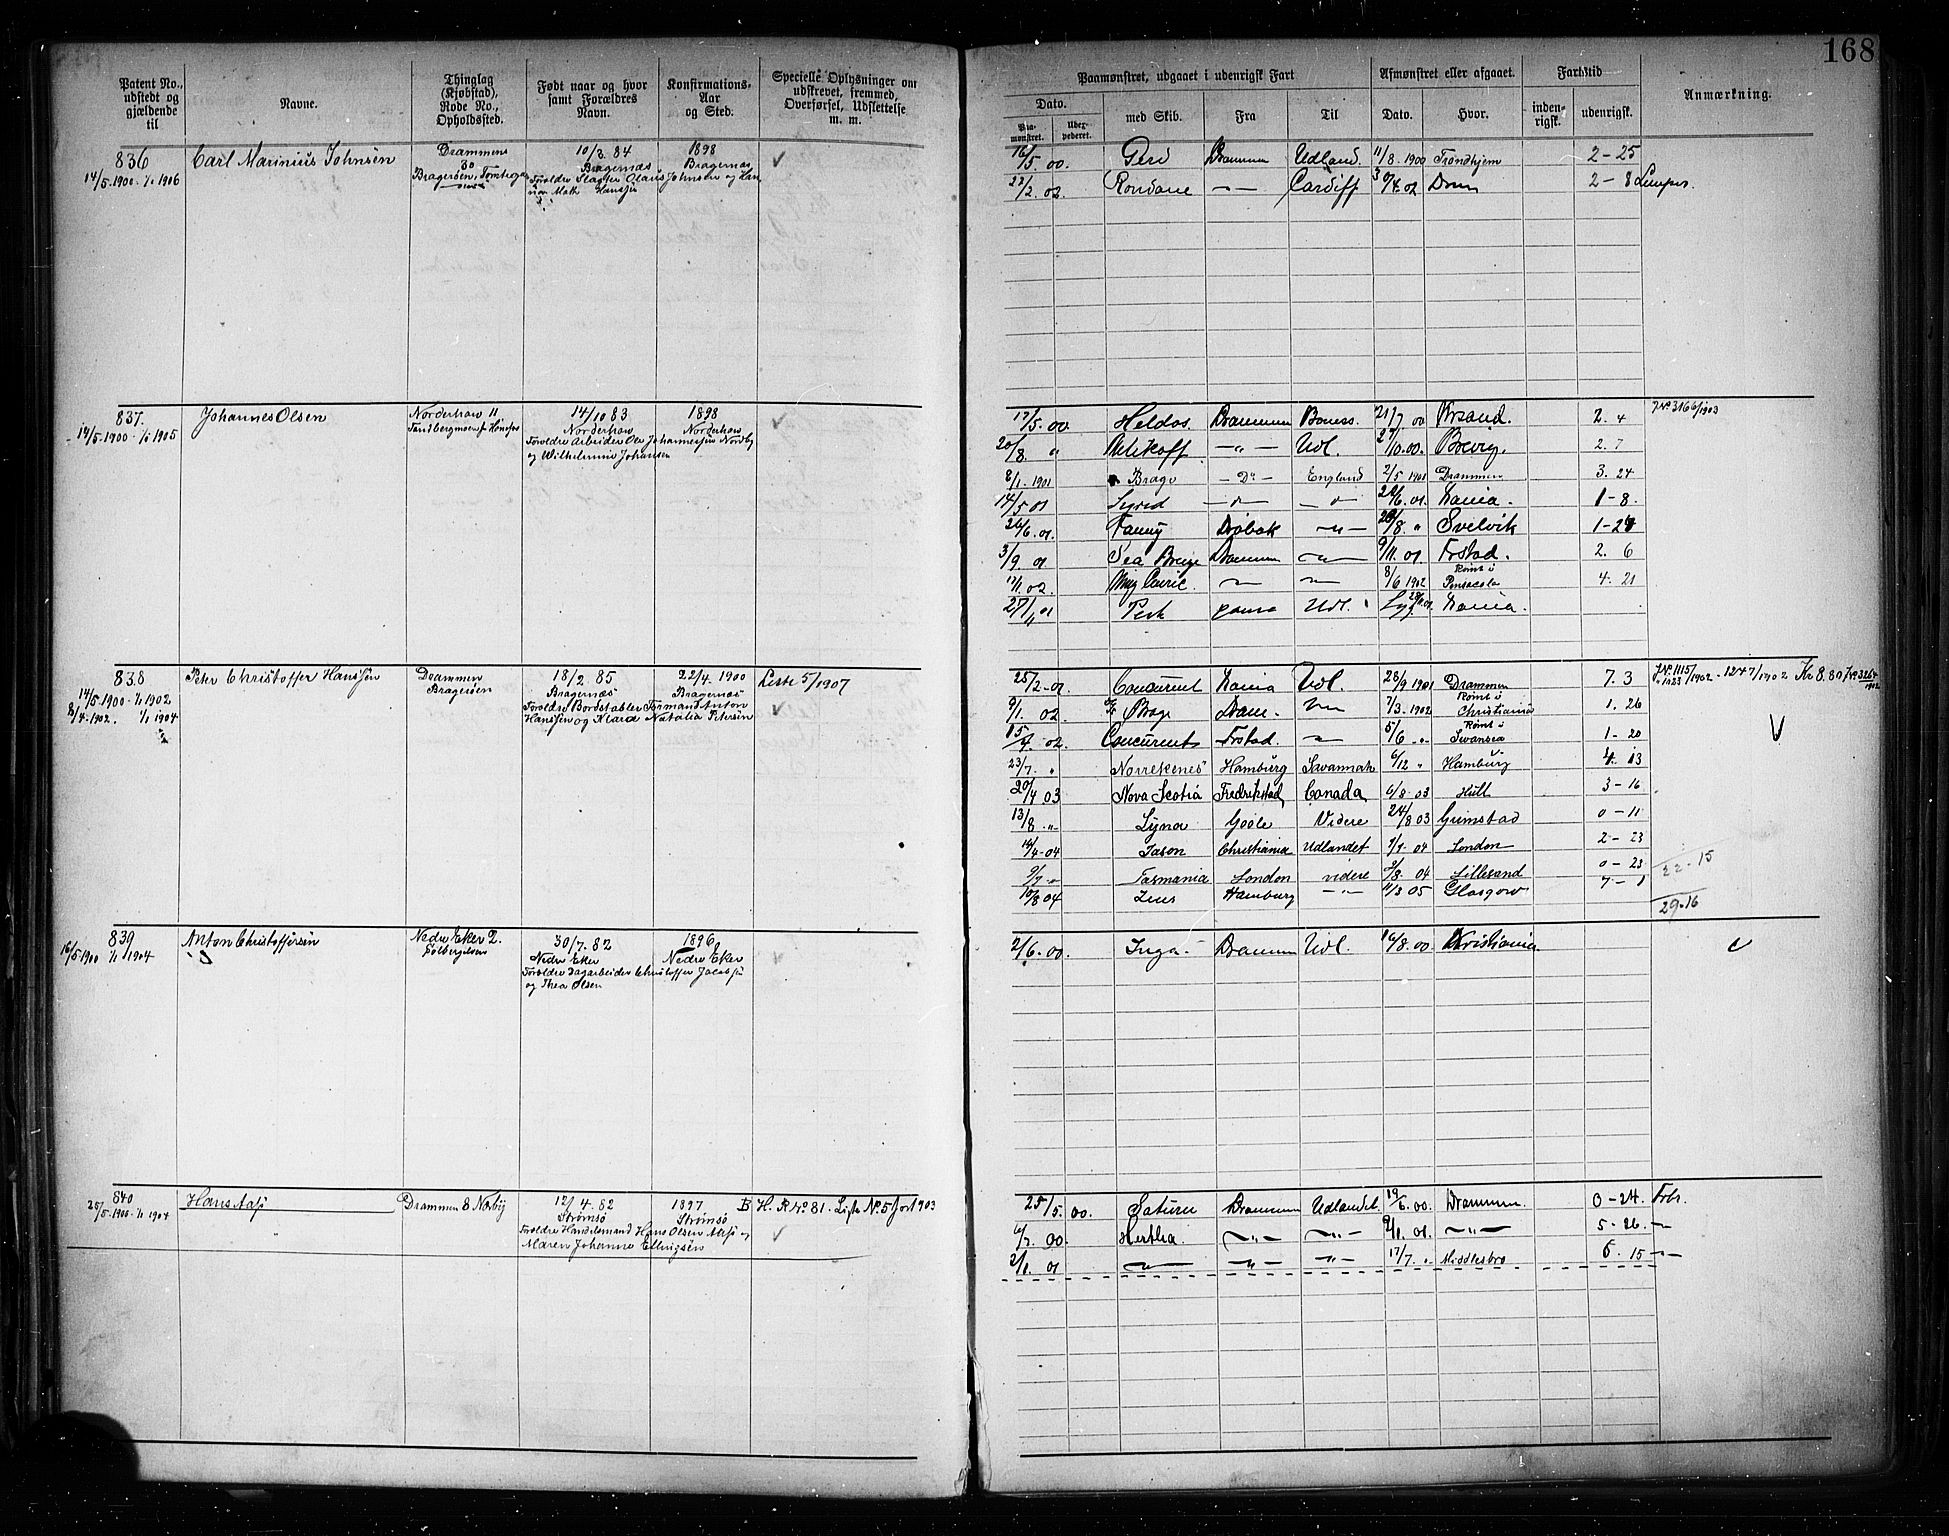 168
Patent No., udstedt og gjældende til
Navne.
Thinglag (Kjøbstad), Rode No., Opholdssted.
Født naar og hvor samt Forældres Navn.
Konfirmations-Aar og Sted.
Specielle Oplysninger om udskrevet, fremmed, Overførsel, Udslettelse m. m.
Paamønstret, udgaaet i udenrigsk Fart
Afmønstret eller afgaaet.
Fartstid
Anmærkning.
Dato.
med Skib.
Fra
Til
Dato.
Hvor.
inden-rigsk.
udenrigsk.
836 Carl Marinius Johnsen Drammens 10/3. 84 1898
14/5. 1900 - 1/1 1906 30 Bragernæs Bragernæs
Forældre Slagter Olaus Johnsen og
16/5. 00. Gerd Drammen Udland. 11/8. 1900 Trondhjem 2-25
22/2. 02. Rondane -"- Cardiff 02 Dmn 2-8
837. Johannes Olsen Norderhow 11 14/10 83 1898
14/5. 1900 - 1/1 1905 Norderhow Norderhow
Forældre Arbeider Ole Johannessen Nordby
og Wilhelmine Johansen
17/5. 00 Heldos Drammen Boness. 21/7 00 Krsand. 2. 4 JNo 3166/1903
20/8. " -"- Udl. 27/10. 00. Brevig. 2. 7
8/1. 1901 Brage -Do- England 2/5 1901 Drammen 3. 24
14/5 01 Sigrid 01. Xania. 1-8.
26/6. 01. Fanny Drøbak -"- 20/8. " Svelvik
3/9. 01 Sea Breeze Drammen -"- 9/11. 01 Frstad. 2. 6
-"- -"- 8/6 1902 Rømt i Pensacola 4. 21
27/11 01 Udl. Xania.
838 Peter Christoffer Hanssen Drammen 18/2. 85 22/4. 1900 Liste 5/1907
14/5. 1900 - 1/1 1902 Bragerøen Bragernæs Bragernæs
8/4. 1902. 1/1 1904 Forældre Bordstabler Tormand Anton
Hanssen og Klara Natalia Petersen
25/2. 01. Concurrent Xania Udl. 28/9 1901 Drammen 7. 3 JNo. 1115/1902 - 1247/1902 Kr 8.80
9/1. 02 Brage Dram. 7/3. 1902 Rømt i Christiania 1. 26
02. Concurrent Frstad. -"- 5/6 " Rømt i Swansea 1-20
23/7. " Norrekenes Hamburg Savannah 6/12 " Hamburg 4. 13
20/4 03 Nova Scotia Fredrikstad Canada 6/8. 03 Hull 3-16
13/8 " Lyna Goole Videre 24/8 03 Grimstad 0-11
14/4-04 Jason Christiania Udlandet 04 London 2-23
Tasmania London videre 04 Lillesand 0-23 22-15
10/8 04 Zeus Hamburg -"- 11/3 05 Glasgow 7-1 29-16
839 Anton Christoffersen Nedre Eker 2. 30/7. 82 1896
16/5. 1900 1/1 1904 Solbergelven Nedre Eker Nedre Eker
Forældre Dagarbeider Christoffer Jacobsen
og Thea Olsen
2/6. 00. Inga Drammen Udl. 16/8. 00. Kristiania
840 Hans Aass Drammen 8 Næsby 12/4. 82 1897 B H. R. No 81. Liste No. 5 for 1903
25/5. 1900 - 1/1 1904 Strømsø Strømsø
Forældre Handelsmand Hans Olsen Aass og
Maren Johanne Ellingsen
25/5. 00. Saturn Drammen Udlandet 19/6. 00. Drammen 0-24.
00. Hertha. -"- -"- 01. -"- 5-26. -"-
2/1. 01 -"- -"- -"- 17/7. " Middlesbro 6. 15 -"-